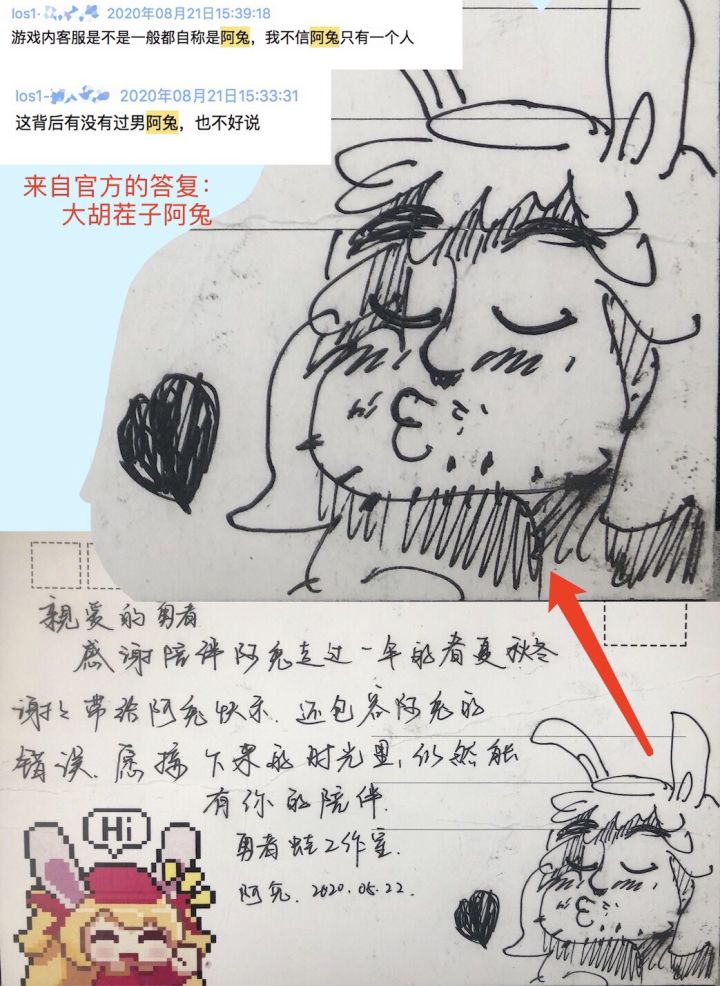 Ios1- 2020年08月21日15:39:18
游戏内客服是不是一般都自称是阿兔，我不信阿兔只有一个人
Ios1- 2020年08月21日15:33:31
这背后有没有过男阿兔，也不好说
来自官方的答复：
大胡茬子阿兔
親爱的勇者
感谢陪伴阿兔走过一年的春夏秋冬
谢谢带给阿兔快乐.还包容阿兔的
错误.愿接下来的时光里,仍然能
有你的陪伴.
Hi
勇者蛙工作室.
阿兔. 2020.05.22.